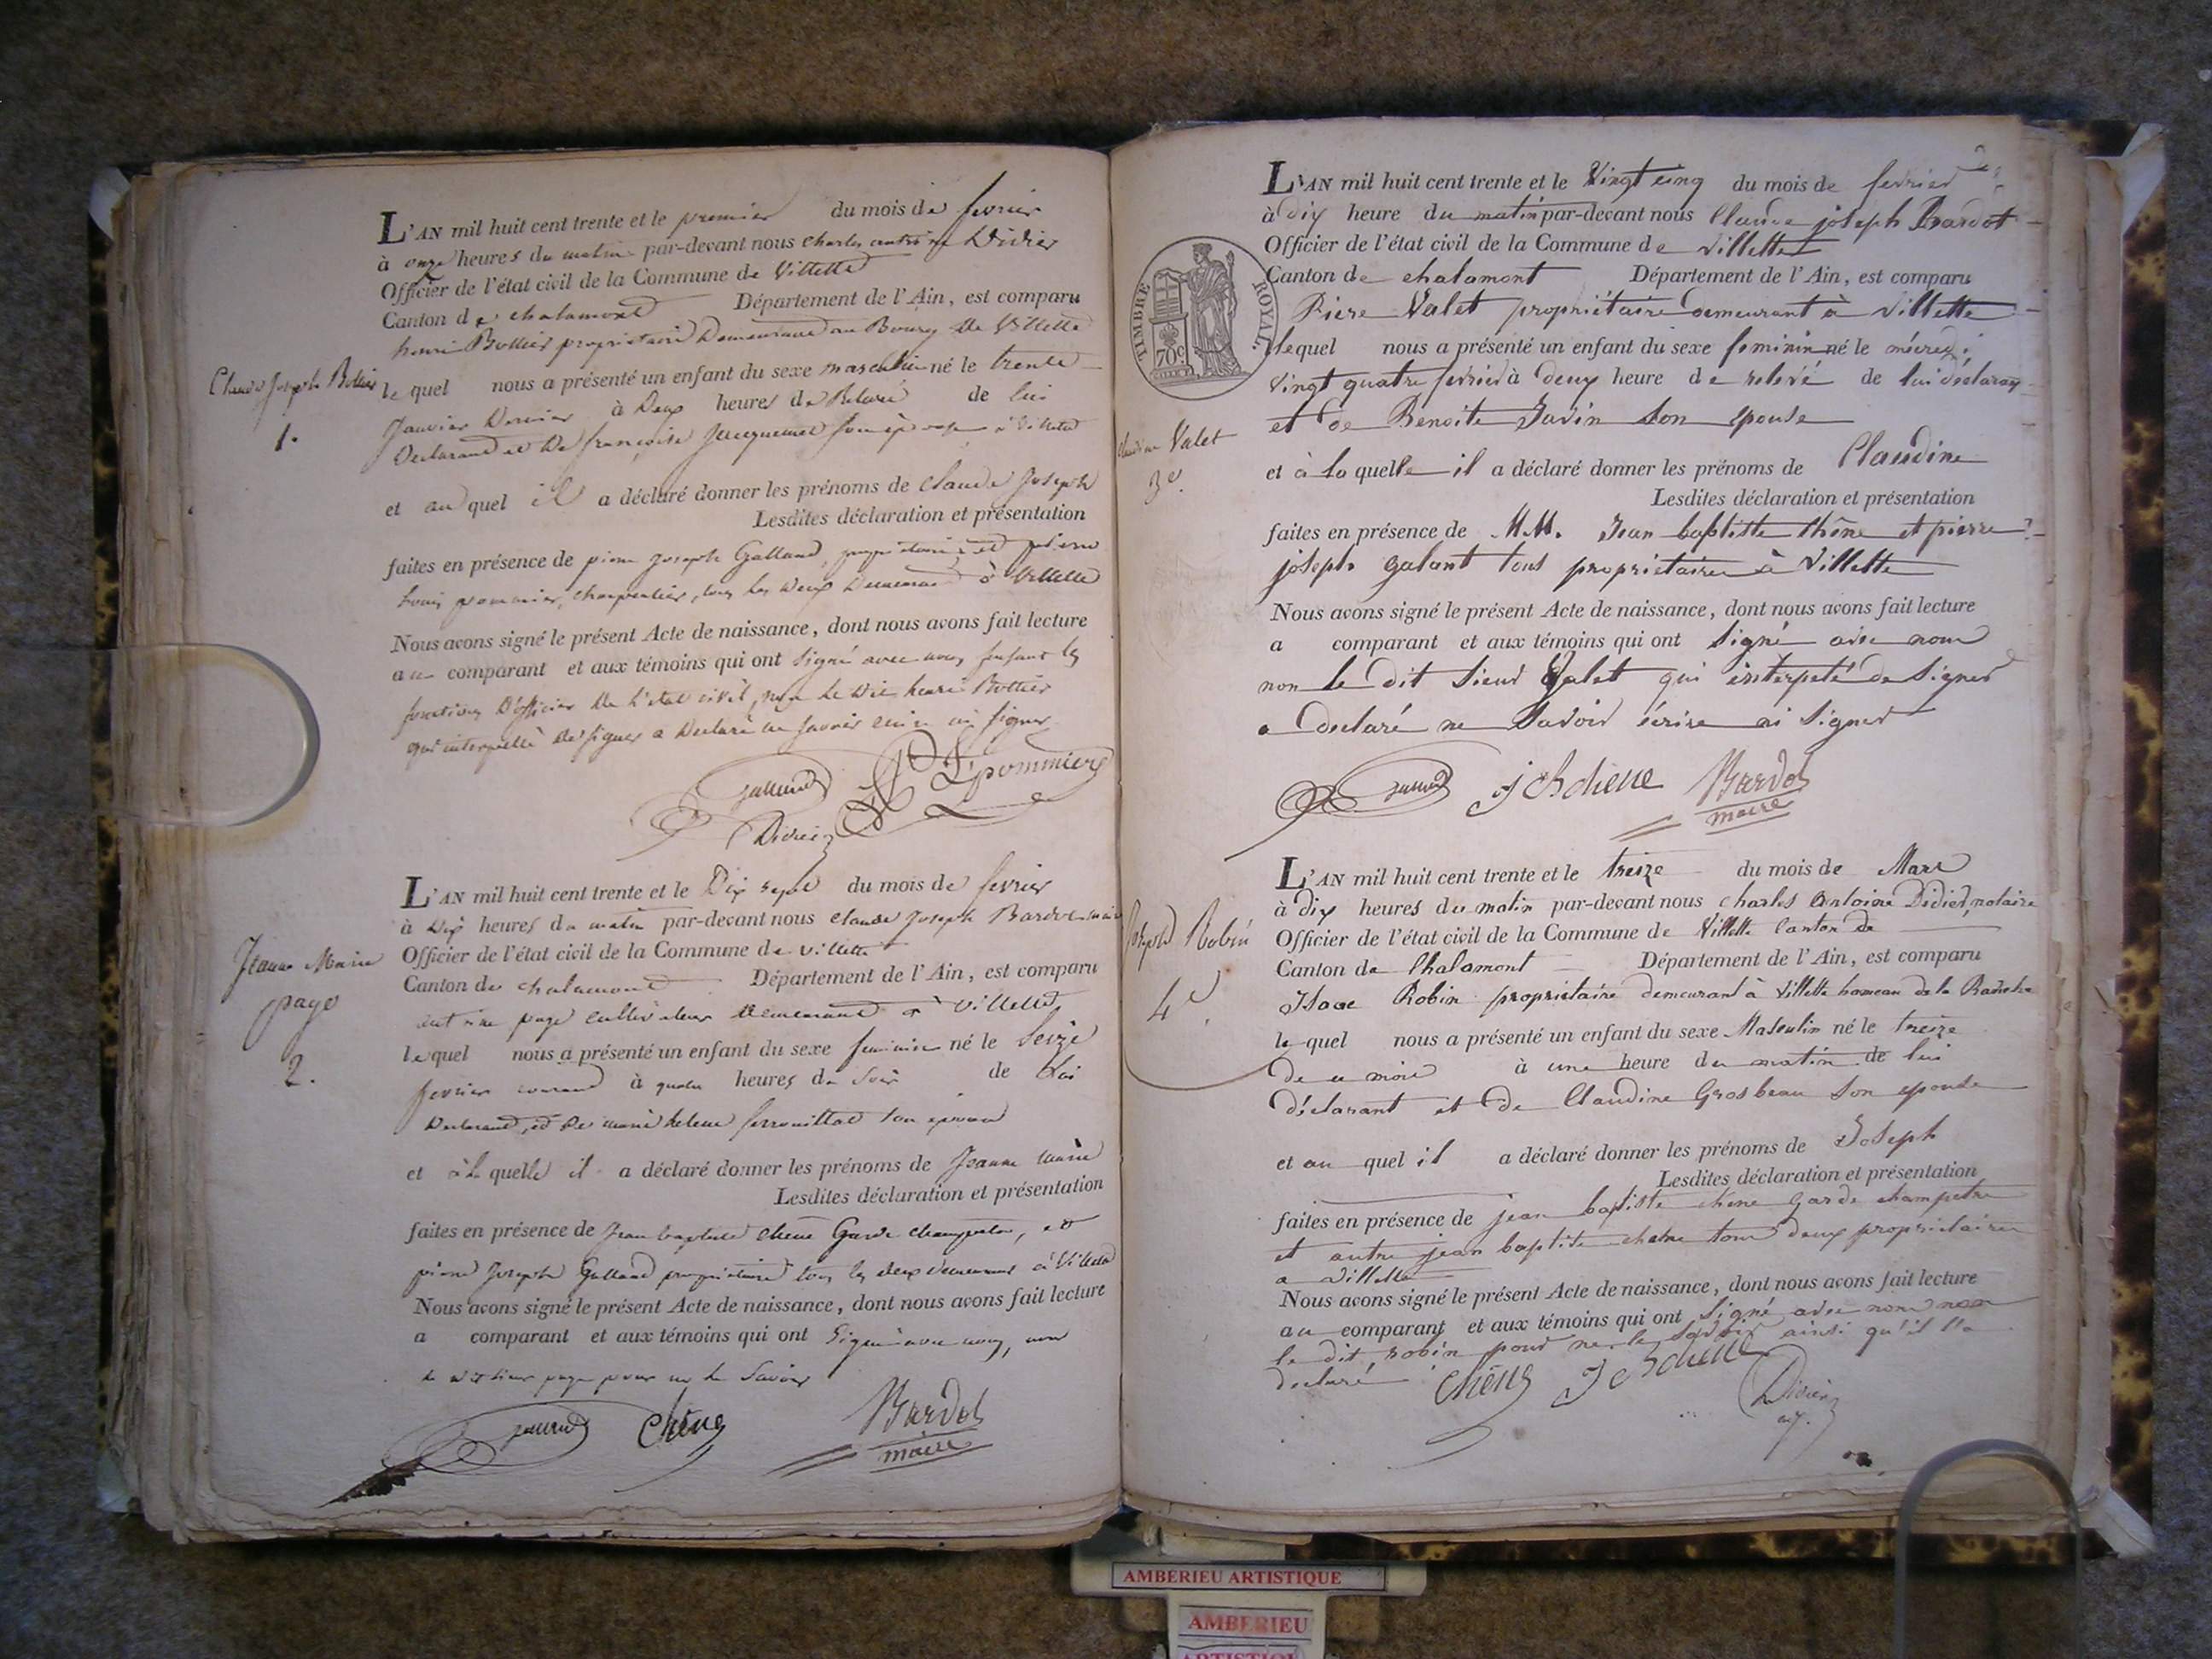 L'AN mil huit cent trente et le premier du mois de fevrier
à onze heures du matin par-devant nous charles antoine Didier
Officier de l'état civil de la Commune de Villette
Canton de chalamont Département de l'Ain, est comparu
henri Bottier propriétaire Demeurant au Bourg de Villette
Claude Joseph Bottier
1.
le quel nous a présenté un enfant du sexe masculin né le trente
Janvier Dernier à Deux heures de Relevé de lui
Declarant et De françoise Jacquemet son épouse à Villette
et au quel il a déclaré donner les prénoms de Claude Joseph
Lesdites déclaration et présentation
faites en présence de pierre Joseph Galland, propriétaire, et pierre
Louis pommier, charpentier, tous les deux Demeurant à Villette
Nous avons signé le présent Acte de naissance, dont nous avons fait lecture
au comparant et aux témoins qui ont signé avec nous faisant les
fonctions D'officier De l'état civil, non le Dit henri Bottier
qui interpellé De signer a Declaré ne savoir écrire ni signer
galland L pommier
Didier
L'AN mil huit cent trente et le Dix sept du mois de fevrier
à Dix heures du matin par-devant nous claude Joseph Bardot maire
Officier de l'état civil de la Commune de villette
Canton de chalamont Département de l'Ain, est comparu
antoine page cultivateur Demeurant à Villette
Jeanne Marie
page
2.
lequel nous a présenté un enfant du sexe feminin né le Seize
fevrier courant à quatre heures du Soir de Lui
Declarant, et De marie helene ferrouillat son épouse
et à la quelle il a déclaré donner les prénoms de Jeanne Marie
Lesdites déclaration et présentation
faites en présence de Jean baptiste chene Garde champetre, et
pierre Joseph Galland propriétaire tous les deux demeurant à Villette
Nous avons signé le présent Acte de naissance, dont nous avons fait lecture
a comparant et aux témoins qui ont signé avec nous, non
le dit sieur page pour ne le Savoir
galland chêne Bardot
maire
L'AN mil huit cent trente et le Vingt cinq du mois de fevrier
à dix heure du matin par-devant nous Claude joseph Bardot
Officier de l'état civil de la Commune de Villette
Canton de chalamont Département de l'Ain, est comparu
Piere Valet propriétaire demeurant à Villette
TIMBRE ROYAL.
70c.
lequel nous a présenté un enfant du sexe feminin né le mécredi
vingt quatre fevrier à deux heure de relevé de lui déclaran
et de Benoite Savin son epouse
Claudine Valet
3e.
et à la quelle il a déclaré donner les prénoms de Claudine
Lesdites déclaration et présentation
faites en présence de M.M. Jean baptiste Chêne et pierre
joseph galant tous propriétaires à Villette
Nous avons signé le présent Acte de naissance, dont nous avons fait lecture
a comparant et aux témoins qui ont signé avec nous
non le dit sieur Valet qui interpeté de signer
a déclaré ne Savoir écrire ni signer
galland j Bd chene Bardot
maire
L'AN mil huit cent trente et le treize du mois de Mars
à dix heures du matin par-devant nous charles Antoine Didier, notaire
Officier de l'état civil de la Commune de Villette Canton de
Canton de Chalamont Département de l'Ain, est comparu
Joseph Robin
4e.
Isaac Robin propriétaire demeurant à Villette hameau de la
le quel nous a présenté un enfant du sexe Masculin né le treize
de ce mois à une heure du matin de lui
déclarant et de Claudine Grosbeau son epouse
et au quel il a déclaré donner les prénoms de Joseph
Lesdites déclaration et présentation
faites en présence de jean baptiste chêne garde champetre
et autre jean baptiste chene tous deux propriétaires
a Villette
Nous avons signé le présent Acte de naissance, dont nous avons fait lecture
au comparant et aux témoins qui ont signé avec nous non
le dit robin pour ne le savoir ainsi qu'il l'a
declaré
chêne chene Didier
AMBERIEU ARTISTIQUE
AMBERIEU
ARTISTIQUE